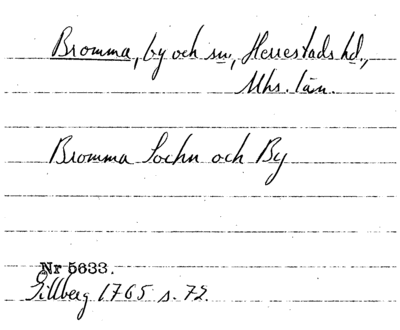 Bromma, by och sn, Herrestads hd.,
Mhs. län.
Bromma Sochn och By
Nr 5633.
Gillberg 1765 s. 72.